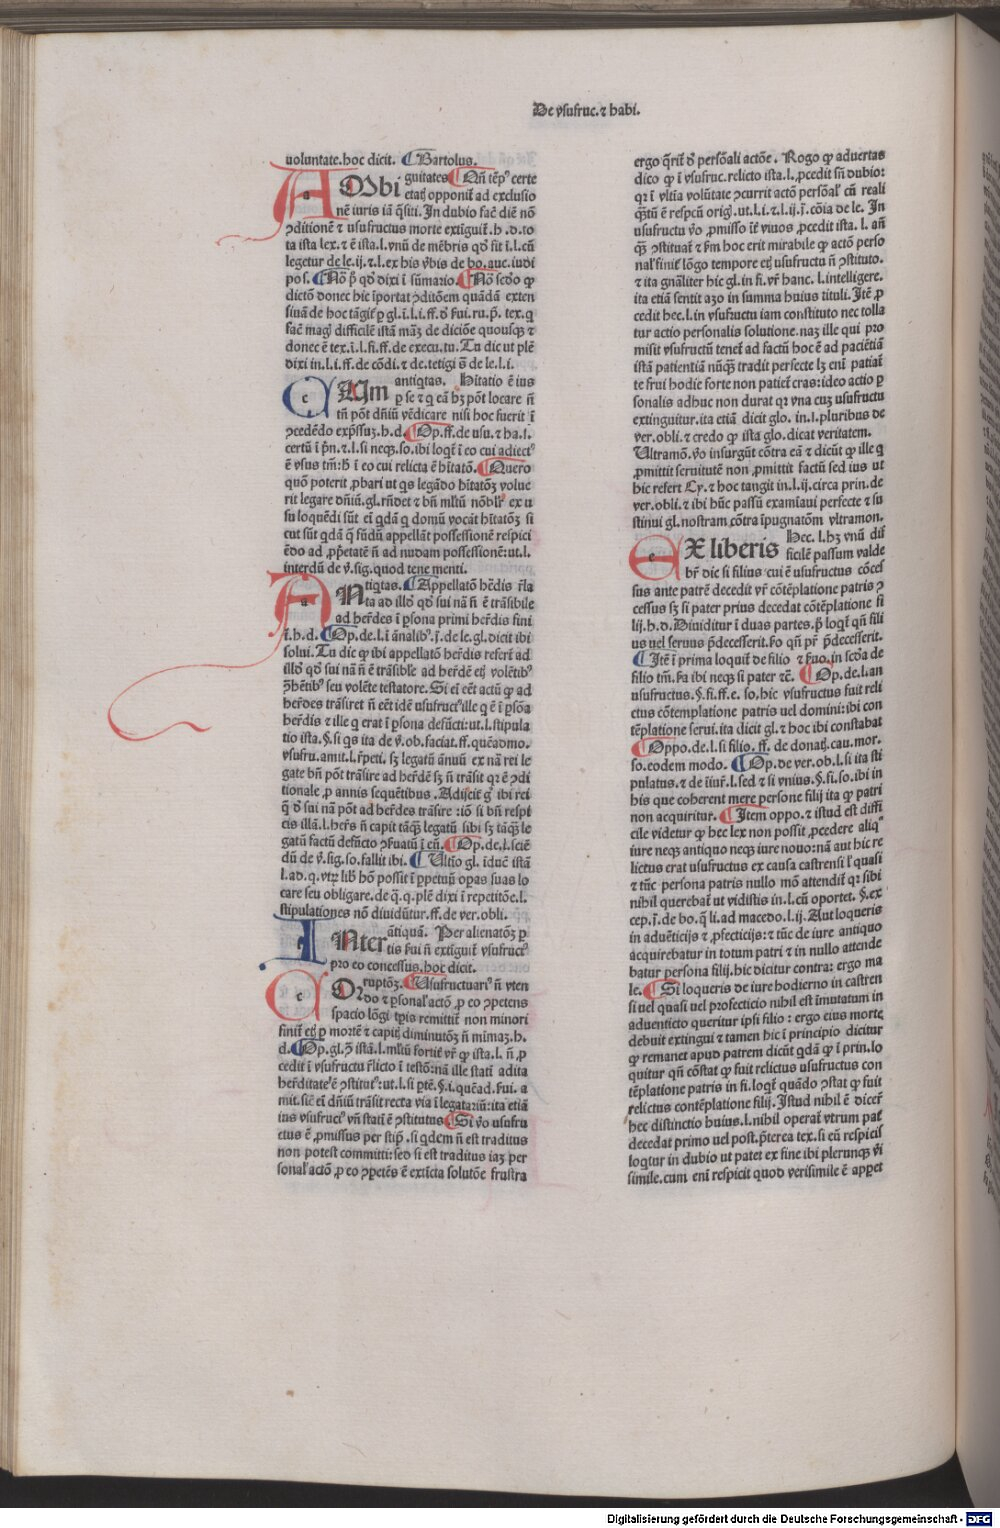 De vsufruc.⁊ habi.
uoluntate.hoc dicit. ⸿Bartolus.
AMbi guitates ⸿Qñ tēp⁹ certe
etatꝭ opponit̄ ad exclusio
nē iuris iā q̄siti. In dubio fac̄ diē nō
ↄditionē ⁊ usufructus morte extīguit̄.h.d.to
ta ista lex.⁊ ē ista.l.vnū de mēbris qd̄ fit ī.l.cū
legetur de le.ij.⁊.l.ex his v̄bis de bo.auc.iudi
pos. ⸿Nō p̄ qd̄ dixi ī sūmario. ⸿Nō scd̄o ꝙ
dictō donec hic īportat ↄditōem quādā exten
siuā de hoc tāgit̄ ꝑ gl.ī.l.i.ff.d̄ ẜui.ru.p̄. tex.q
fac̄ magꝭ difficilē istā māꝫ de diciōe quousqꝫ ⁊
donec ē tex.ī.l.fi.ff.de execu.tu. Tu dic ut plē
dixi in.l.i.ff.de cōdi.⁊ de.tetigi s̄ de le.l.i.
CUm antiqtas. Hītatio ē ius
ꝑ se ⁊ q eā hꝫ pōt locare ñ
tñ pōt dñiū vēdicare nisi hoc fuerit ī
ↄcedēdo exp̄ssuꝫ.h.d. ⸿Op.ff.de usu.⁊ ha.l.
certū ī p̄n.⁊.l.si neqꝫ.so.ibi loqt̄ ī eo cui adieci⁹
ē vsus tm̄:h̄ ī eo cui relicta ē hītatō. ⸿Quero
quō poterit ꝓbari ut qs legādo hītatōꝫ volue
rit legare dñiū.gl.rñdet ⁊ bñ ml̄tū nōbil̄r ex u
su loquēdi sūt eī qdā q domū vocāt hītatōꝫ si
cut sūt qdā q fūdū appellāt possessionē respici
ēdo ad ꝓp̄etatē ñ ad nudam possessionē:ut.l.
interdū de v̄.sig.quod tene menti.
ANtiqtas. ⸿Appellatō hēdis r̄la
ta ad illō qd̄ sui nā ñ ē trāsibile
ad her̄des ī ꝑsona primi her̄dis fini
t̄.h.d. ⸿Op.de.l.ī ānalib⁹.j.de le.gl.dicit ibi
solui. Tu dic ꝙ ibi appellatō her̄dis refert̄ ad
illō qd̄ sui nā ñ ē trāsibl̄e ad her̄dē etꝫ volētib⁹
ꝓhētib⁹ seu volēte testatore. Si eī eēt actū ꝙ ad
her̄des trāsiret ñ eēt idē usufruct⁹ ille q ē ī ꝑsōa
her̄dis ⁊ ille q erat ī ꝑsona defūcti:ut.l.stipula
tio ista.§.si qs ita de v̄.ob.faciat.ff.quēadmo.
vsufru.amit.l.r̄peti. sꝫ legatū ānuū ex nā rei le
gate bñ pōt trāsire ad her̄dē sꝫ ñ trāsit qr ē ↄdi
tionale ꝓ annis sequētibus. Adijcit g̊ ibi rei
q̄ d̄ sui nā pōt ad her̄des trāsire:iō si bñ respi
cis illā.l.her̄s ñ capit tāqꝫ legatū sibi sꝫ tāqꝫ le
gatū factū defūcto ↄẜuatū ī eū. ⸿Op.de.l.sciē
dū de v̄.sig.so.fallit ibi. ⸿Ultīo gl.īducē istā
l.ad.q.vtꝝ lib̄ hō possit ī ꝑpetuū oꝑas suas lo
care seu obligare.de q̄.q.plē dixi ī repetitōe.l.
stipulationes nō diuidūtur.ff.de ver.obli.
INter ātiquā. Per alienatōꝫ ꝑ
tis ẜui ñ extīguit̄ vsufruct⁹
pro eo concessus.hoc dicit.
COrruptōꝫ. ⸿Usufructuari⁹ ñ vten
do ⁊ ꝑsonal̄ actō ꝓ eo ↄpetens
spacio lōgi tꝑis remittit̄ non minori
finit̄ etꝫ ꝑ mortē ⁊ capitꝭ diminutōꝫ ñ mimaꝫ.h.
d. ⸿Op.gl.ↄ̄ istā.l.ml̄tū fortit̄ vr̄ ꝙ ista.l. ñ ꝓ
cedit ī vsufructu r̄licto ī testō:nā ille stati adita
her̄ditate ē ↄstitut⁹:ut.l.si ꝑtē.§.i.quēad.ẜui.a
mit.sic̄ eī dñiū trāsit recta via ī legatariū:ita etiā
ius vsufruct⁹ vñ stati ē ↄstitutus ⸿Si v̄o usufru
ctus ē ꝓmissus per stip̄.si qdem ñ est traditus
non potest committi:sed si est traditus iaꝫ per
sonal̄ actō ꝓ eo ↄpetēs ē extīcta solutōe frustra
ergo q̄rit̄ d̄ persōali actōe. Rogo ꝙ aduertas
dico ꝙ ī vsufruc.relicto ista.l.ꝓcedit sñ dubio:
qr ī vltīa volūtate ↄcurrit actō persōal̄ cū reali
q̄stū ē respcū origꝭ.ut.l.i.⁊.l.ij.j.cōia de le. In
usufructu v̄o ꝓmisso īt̄ viuos ꝓcedit ista.l. añ
qꝫ ↄstituat̄ ⁊ ẜm hoc erit mirabile ꝙ actō perso
nal̄ finit̄ lōgo tempore etꝫ usufructu ñ ↄstituto.
⁊ ita gñaliter hic gl.in fi.vr̄ hanc.l.intelligere.
ita etiā sentit azo in summa huius tituli. Itē ꝓ
cedit hec.l.in ysufructu iam constituto nec tolla
tur actio personalis solutione.naꝫ ille qui pro
misit vsufructū tenet̄ ad factū hoc ē ad paciētiā
istā patientiā nūqꝫ tradit perfecte lꝫ eni patiat̄
te frui hodie forte non patiet̄ cras:ideo actio ꝑ
sonalis adhuc non durat qꝫ vna cuꝫ usufructu
extinguitur.ita etiā dicit glo. in.l.pluribus de
ver.obli.⁊ credo ꝙ ista glo.dicat veritatem.
Ultramō.v̄o insurgūt cōtra eā ⁊ dicūt ꝙ ille q
ꝓmittit seruitutē non ꝓmittit factū sed ius ut
hic refert Cy.⁊ hoc tangit in.l.ij.circa prin.de
ver.obli.⁊ ibi hūc passū examīaui perfecte ⁊ su
stinui gl.nostram cōtra īpugnatōm vltramon.
EX liberis Hec.l.hꝫ vnū dif
ficilē passum valde
br̄ dic si filius cui ē usufructus cōces
sus ante patrē decedit vr̄ cōtēplatione patris ↄ
cessus sꝫ si pater prius decedat cōtēplatione fi
lij.h.d. Diuiditur ī duas partes.p̄ loqt̄ qñ fili
us uel seruus p̄decesserit.ẜo qñ pr̄ p̄decesserit.
⸿Itē ī prima loquit̄ de filio ⁊ ẜuo.in scd̄a de
filio tm̄.ẜa ibi neqꝫ si pater ⁊c̄. ⸿Op.de.l.an
usufructus.§.fi.ff.e. so.hic ysufructus fuit reli
ctus cōtemplatione patris uel domini:ibi con
tēplatione serui.ita dicit gl.⁊ hoc ibi constabat
⸿Oppo.de.l.si filio. ff. de donatꝫ.cau.mor.
so.eodem modo. ⸿Op.de ver.ob.l.si ita sti
pulatus.⁊ de īiur̄.l.sed ⁊ si vnius.§.fi.so.ibi in
his que coherent mere persone filij ita ꝙ patri
non acquiritur. ⸿Item oppo.⁊ istud est diffi
cile videtur ꝙ hec lex non possit ꝓcedere aliq
iure neqꝫ antiquo neqꝫ iure nouo:nā aut hic re
lictus erat usufructus ex causa castrensi l̄ quasi
⁊ tūc persona patris nullo mō attendit̄ qr sibi
nihil querebat̄ ut vidistis in.l.cū oportet. §.ex
cep.j.de bo.q̄ li.ad macedo.l.ij. Aut loqueris
in aduēticijs ⁊ ꝓfecticijs:⁊ tūc de iure antiquo
acquirebatur in totum patri ⁊ in nullo attende
batur persona filij.hic dicitur contra: ergo ma
le. ⸿Si loqueris de iure hodierno in castren
si uel quasi uel profecticio nihil est īmutatum in
aduenticio queritur ipsi filio: ergo eius morte
debuit extingui ⁊ tamen hic ī principio dicitur
ꝙ remanet apud patrem dicūt qdā ꝙ ī prin.lo
quitur qñ cōstat ꝙ fuit relictus usufructus con
tēplatione patris in fi.loqt̄ quādo ↄstat ꝙ fuit
relictus contēplatione filij. Istud nihil ē dicer̄
hec distinctio huius.l.nihil operat̄ vtrum pat̄
decedat primo uel post.p̄terea tex.si eū respicis
loqtur in dubio ut patet ex fine ibi plerunqꝫ v̄i
simile.cum eni respicit quod verisimile ē appet
Digitalisierung gefördert durch die Deutsche Forschungsgemeinschaft - DFG